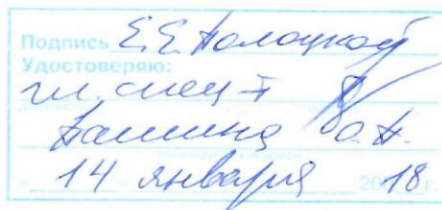 Подпись Е.Е. Полоцкой
Удостоверяю:
гл. спец-т
14 января 2018 г.